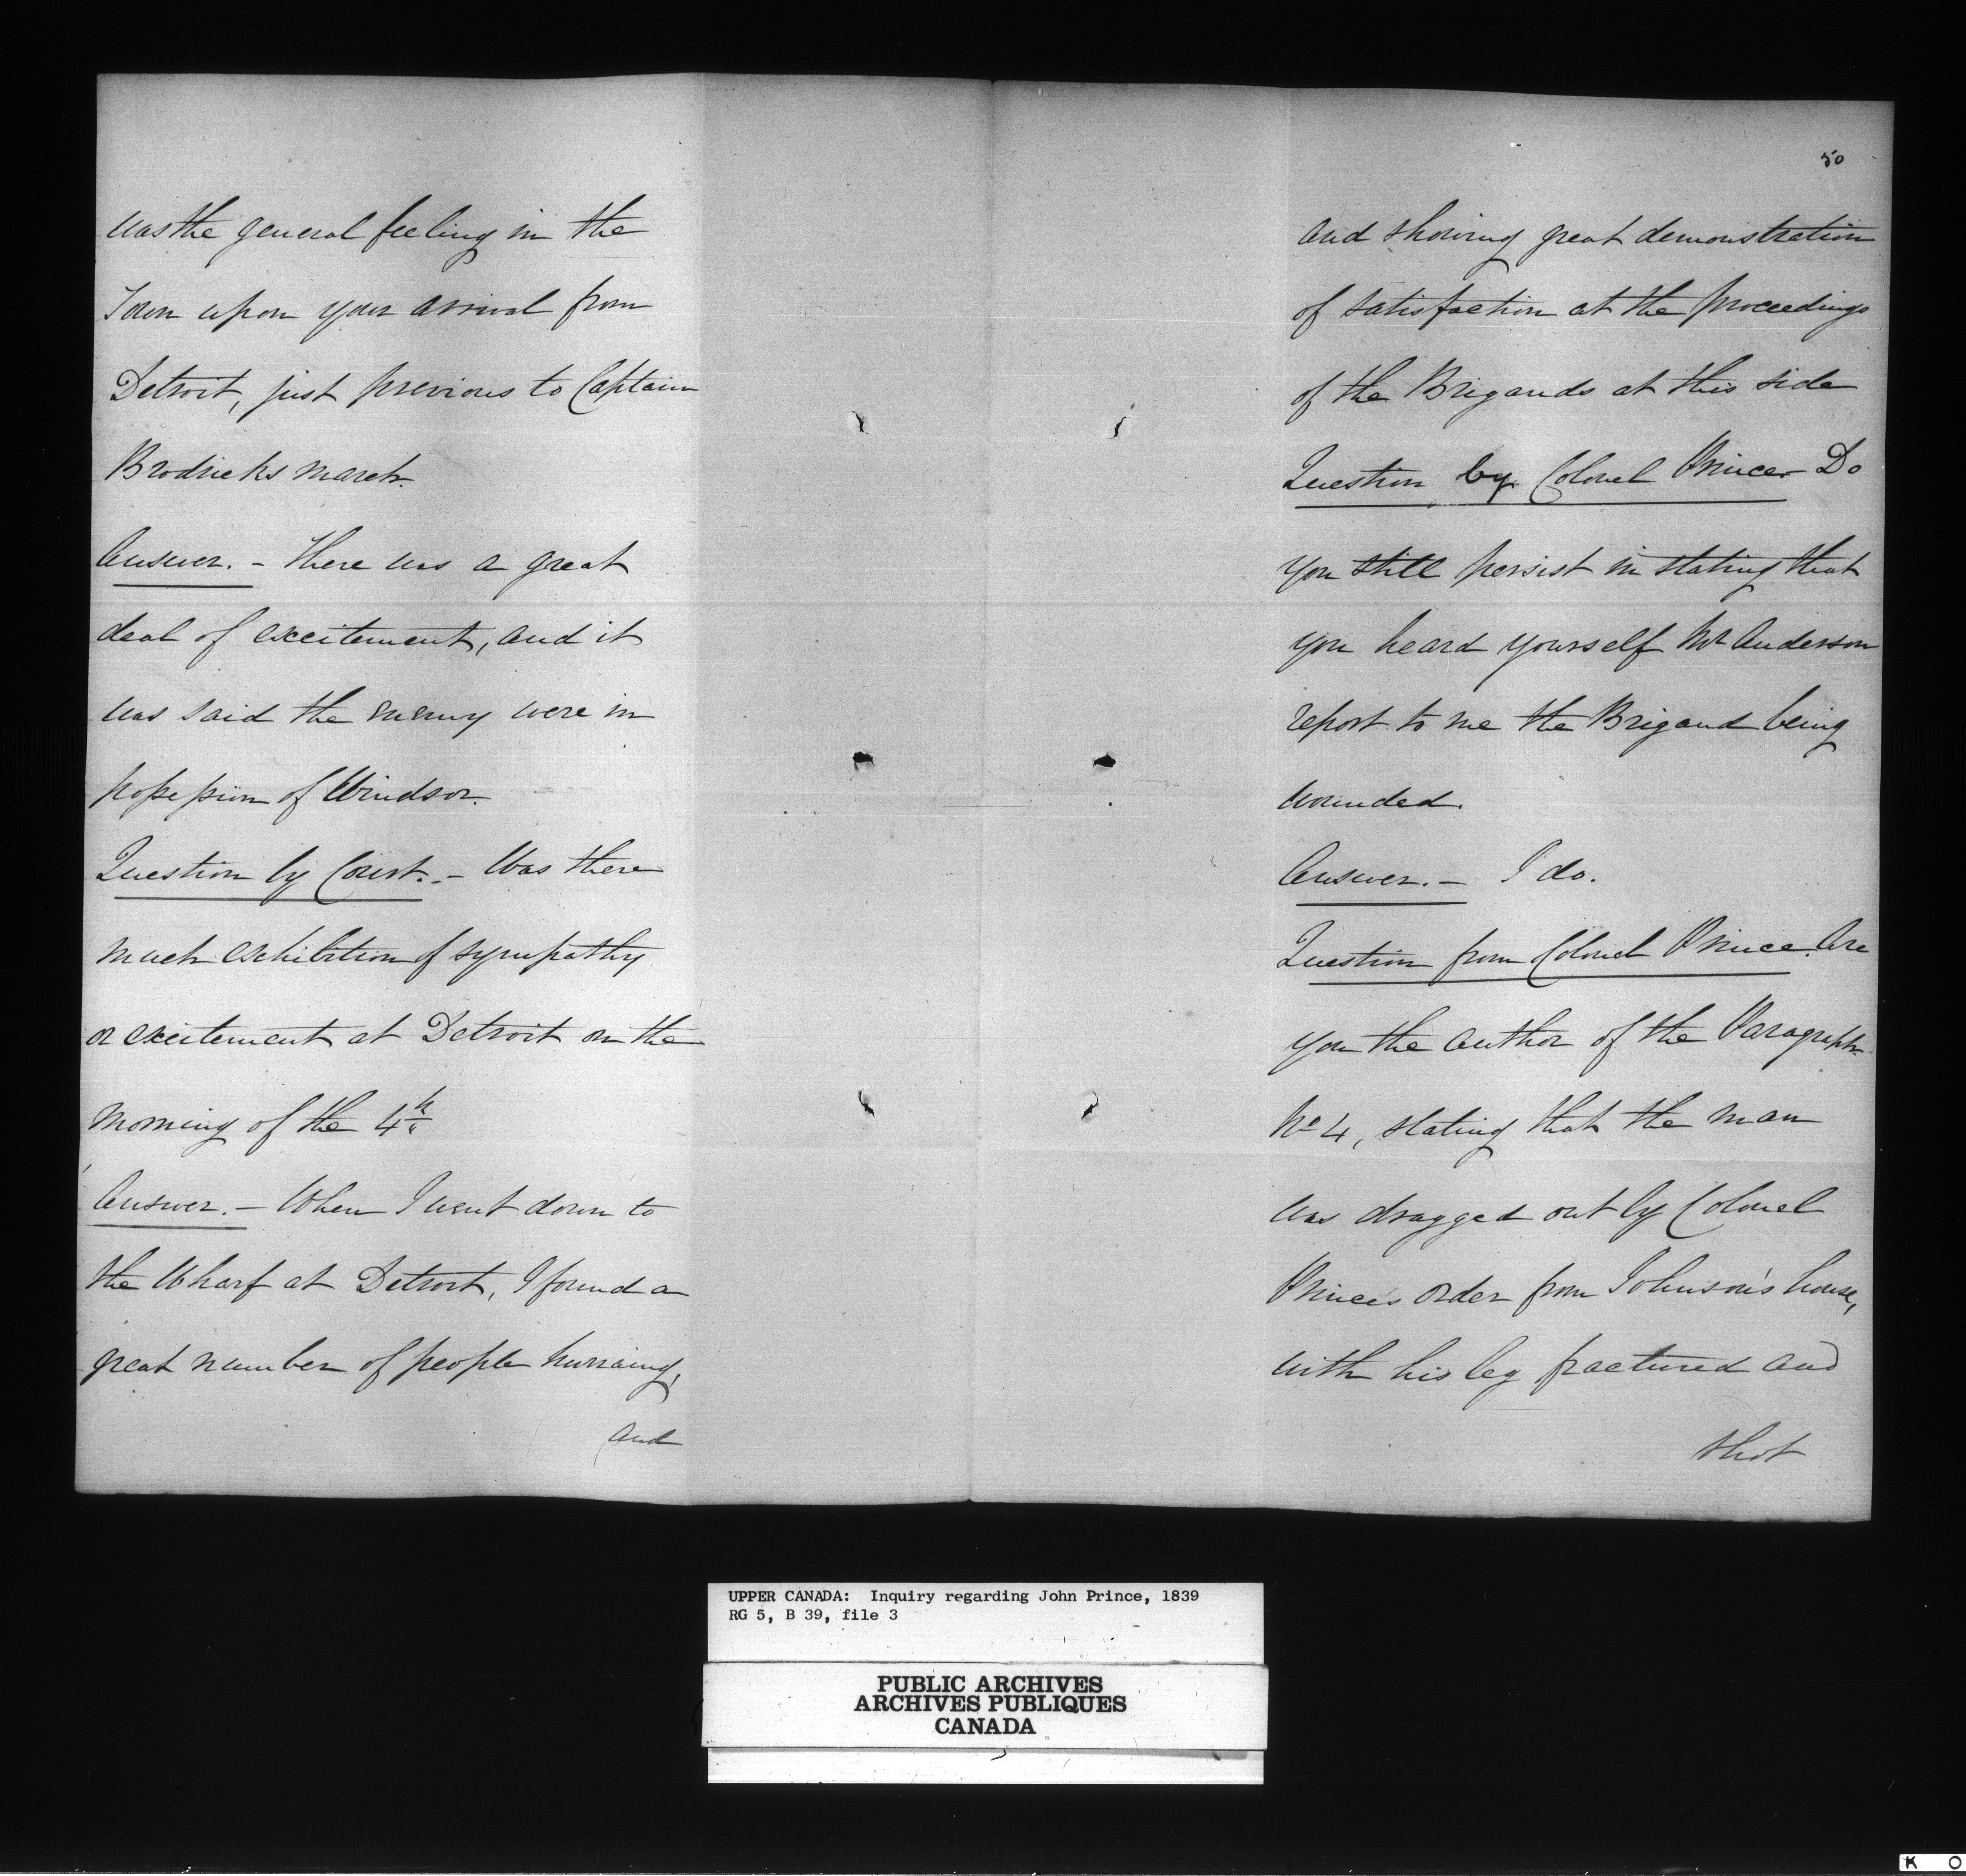 was the general feeling in the
Town upon your arrival from
Detroit, just previous to Captain
Brodricks march.
Answer. - There was a great
deal of excitement, and it
was said the enemy were in
possession of Windsor.
Question by Court. - Was there
much exhibition of sympathy
or excitement at Detroit on the
morning of the 4th
Answer. - When I went down to
the Wharf at Detroit, I found a
great number of people hurraing,
and
50
and showing great demonstration
of satisfaction at the proceedings
of the Brigands at this side
Question by Colonel Prince - Do
you still persist in stating that
you heard yourself Mr Anderson
report to me the Brigand being
wounded.
Answer. - I do.
Question from Colonel Prince. Are
you the author of the Paragraph
No 4, stating that the man
was dragged out by Colonel
Prince's order from Johnson's house,
with his leg fractured and
shot
UPPER CANADA: Inquiry regarding John Prince, 1839
RG 5, B 39, file 3
PUBLIC ARCHIVES
ARCHIVES PUBLIQUES
CANADA
K O